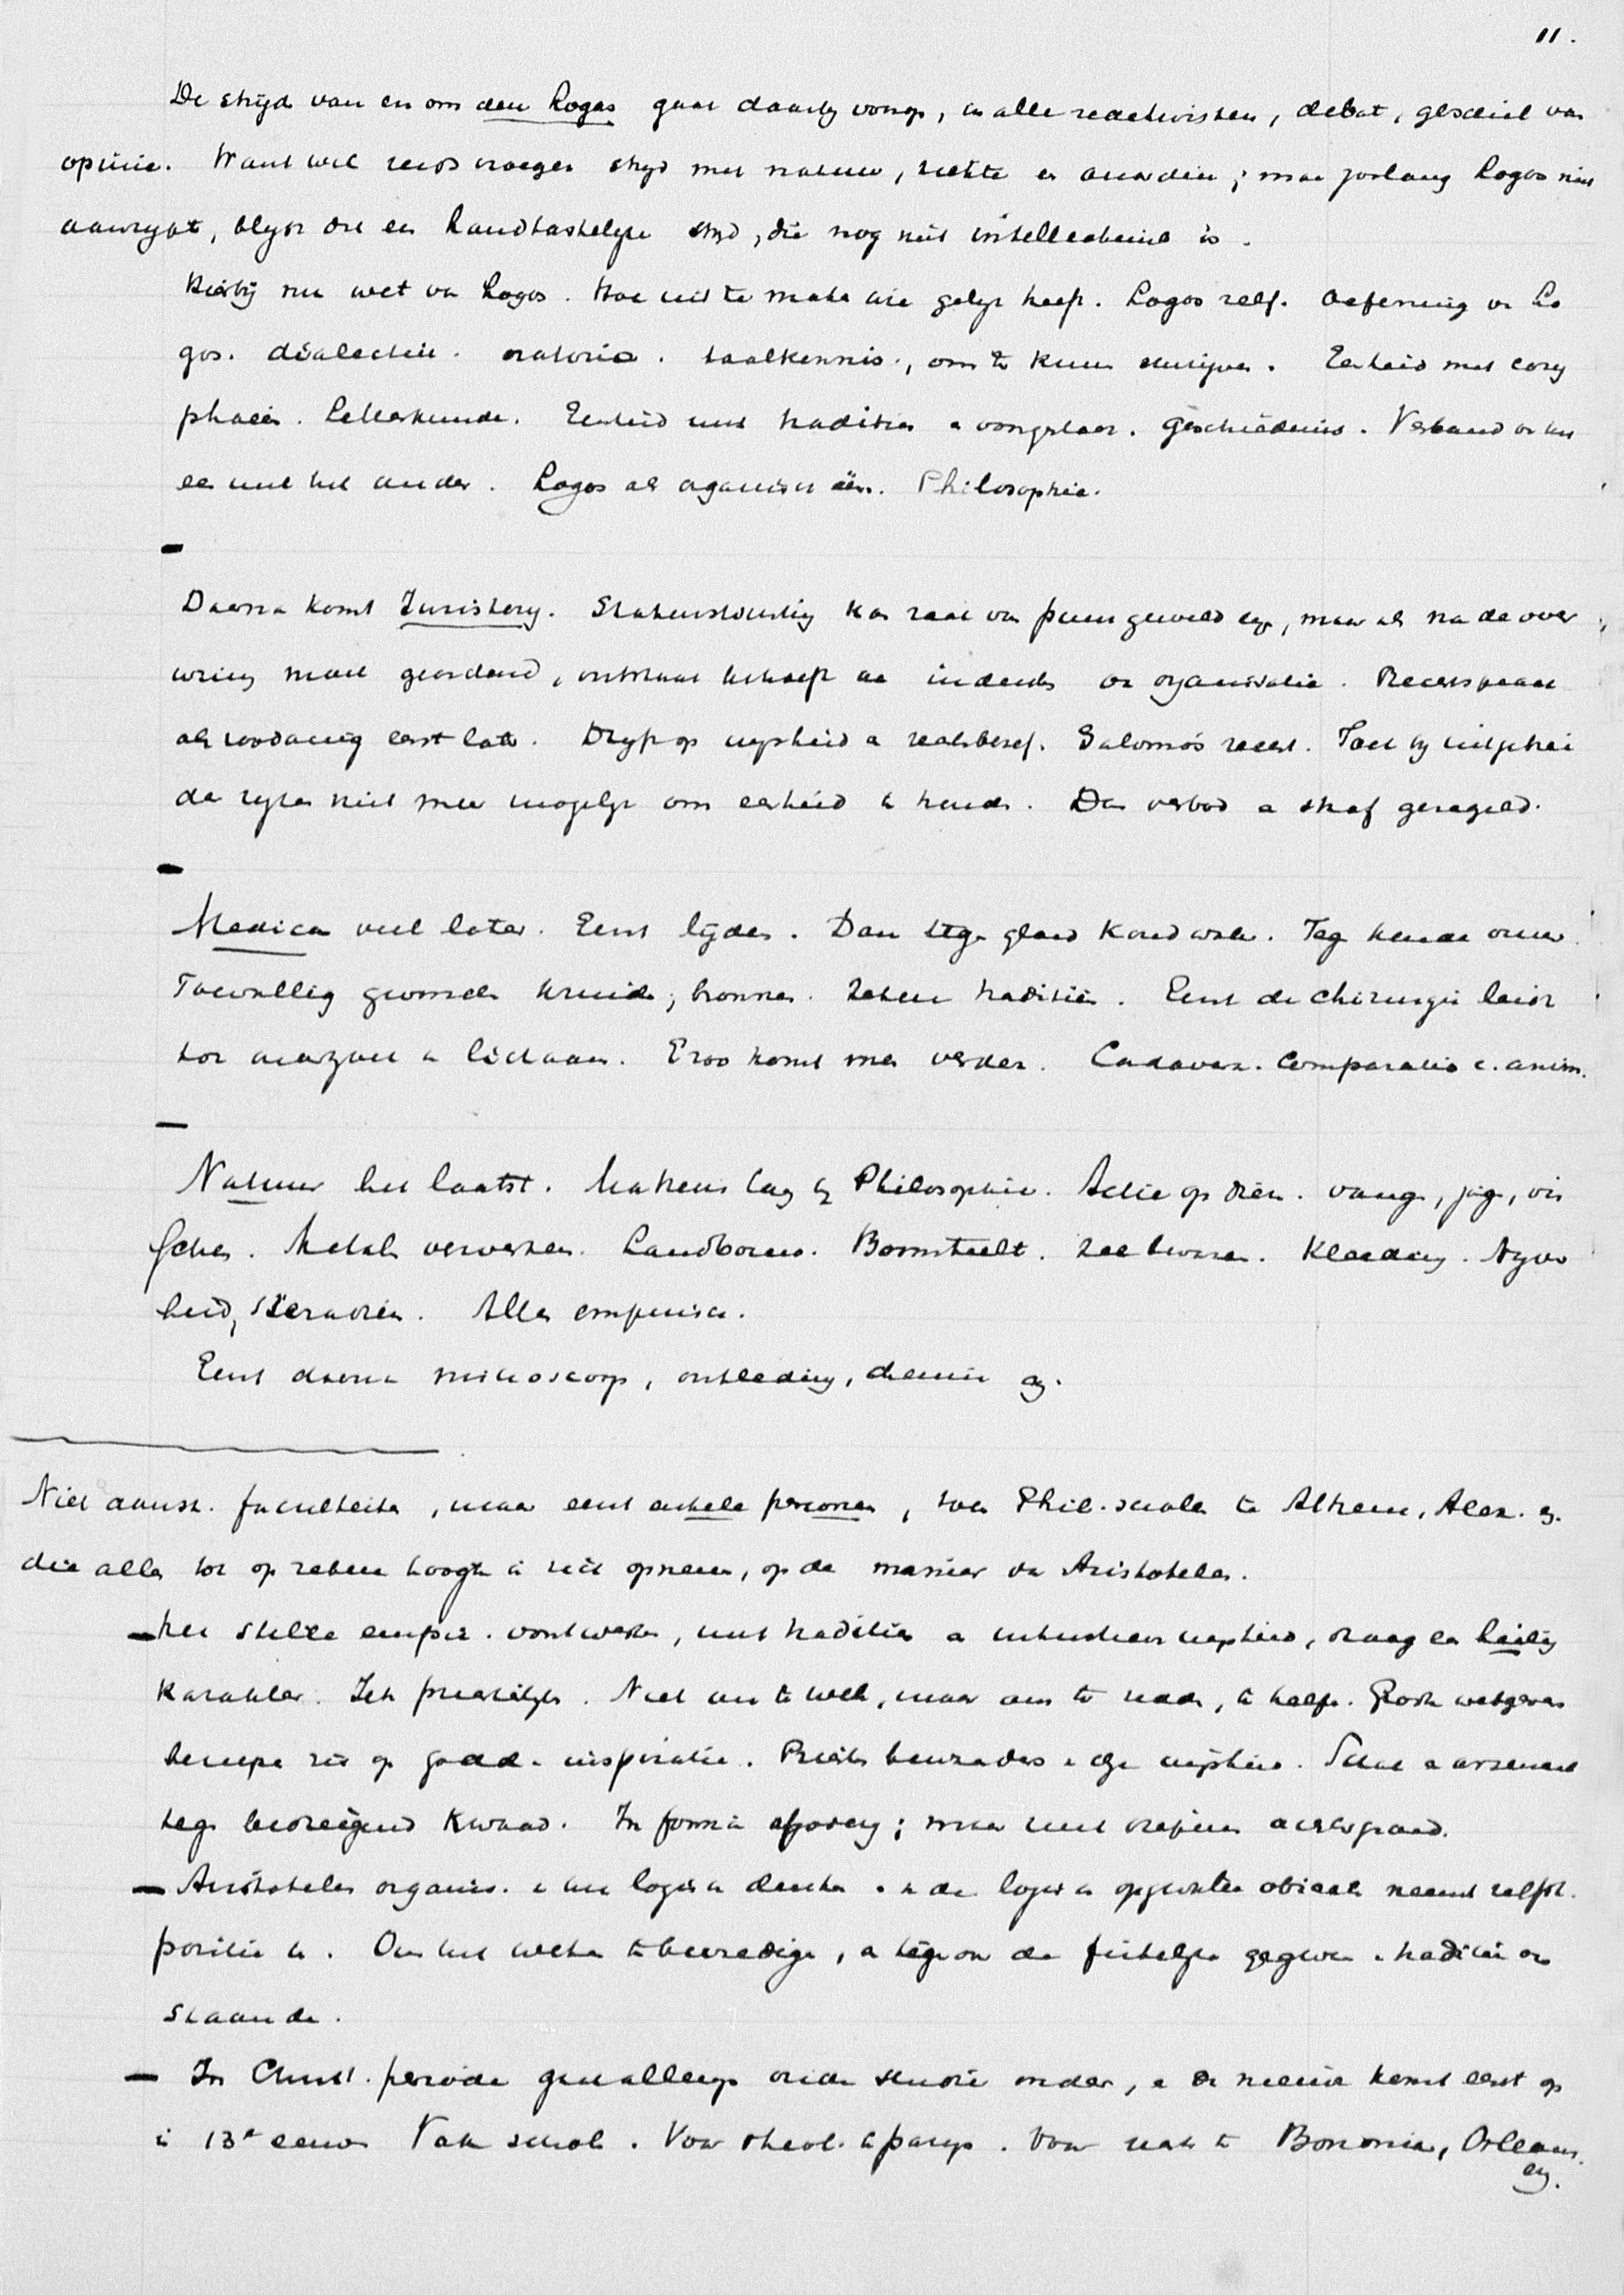 11.
De strijd van en om den Logos gaat daarbij voorop, in alle redetwisten, debat, geschil van
opinie. Want wel reeds vroeger strijd met natuur, ziekte en ; maar zoolang Logos niet
aangrijpt, blijft dit een handtastelijke strijd, die nog niet intellectueel is.
Hierbij nu wet van Logos. Hoe uit te maken wie gelijk heeft. Logos zelf. Oefening van Lo
gos. dialectiek. oratorie. taalkennis, om te kunnen . Eenheid met cory
phaeën. Letterkunde. Eenheid met traditie en voorgeslacht. Geschiedenis. Verband van het
een met het ander. Logos als organisch één. Philosophie.
Daarna komt Juristerij. kan zaak van puur geweld zijn, maar als na de over
winning moet geordend, ontstaat behoefte aan van organisatie. Rechtspraak
als zoodanig eerst later. Drijft op wijsheid en rechtsbesef. Salomo's recht. Toch bij uitgebrei
der rijken niet meer mogelijk om eenheid te houden. Dan verbod en straf geregeld.
Medica veel later. Eerst lijden. Dan tegen gloed koud water. Tegen koude vuur.
Toevallig gevonden kruiden, bronnen. Zekere traditie. Eerst de chirurgie leidt
tot in lichaam. Zoo komt men verder. Cadaver. Comparatio c. anim.
Natuur het laatst. Mathesis lag bij Philosophie. Actie op dier. vangen, jagen, vis
schen. Metaal verwerken. Landbouw. Boomteelt. Zee bevaren. Kleeding. Nijver
heid, sieradiën. Alles empirisch.
Eerst daarna microscoop, ontleding, chemie enz.
Niet aanst. faculteiten, maar eerst enkele personen, toen Phil. scholen te Athene, Alex. enz.
die alles tot op zekere hoogte in zich opnemen, op de manier van Aristoteles.
Het stille empir. voortwerken, met traditie en wijsheid, draagt een heilig
karakter. Iets priesterlijks. Niet om te weten, maar om te raden, te helpen. Groote wetgevers
beroepen zich op godd. inspiratie. Priesters bewaarders eener wijsheid. Schat en arsenaal
tegen bedreigend kwaad. In formā afgoderij; maar met dieperen achtergrond.
Aristoteles organis. in het logisch denken. de logisch opgewekte neemt zelfst.
positie in. Om het weten te bevredigen, en tegenover de feitelijke gegeven traditie
staande.
In Christ. periode ging allengs oude studie onder, en de nieuwe komt eerst op
in 13e eeuw Vak scholen. Voor theol. te Parijs. Voor recht te Bononia, Orleans.
enz.